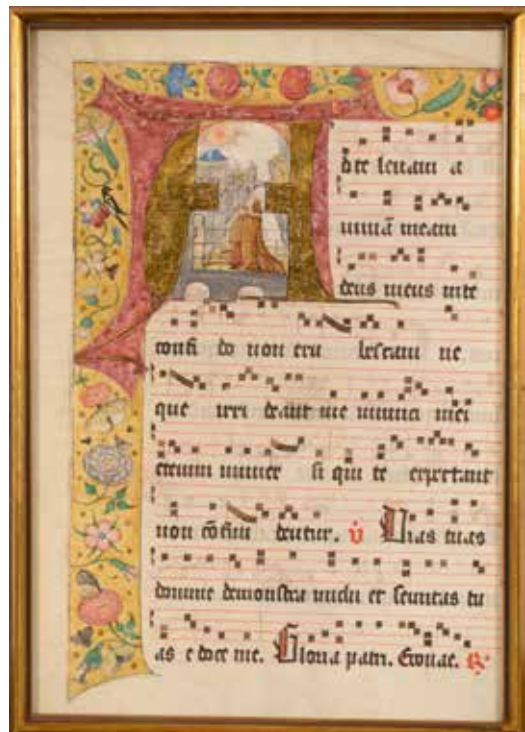 Ad te leuaui a
nimā meam
deus meus in te
confi do non eru bescam ne
que irri deant me inimici mei
etenim vniuer si qui te expectant
non cōfun dentur. v̇ Vias tuas
domine demonstra michi et semitas tu
as e doce me. Gloria patri. Euouae. R